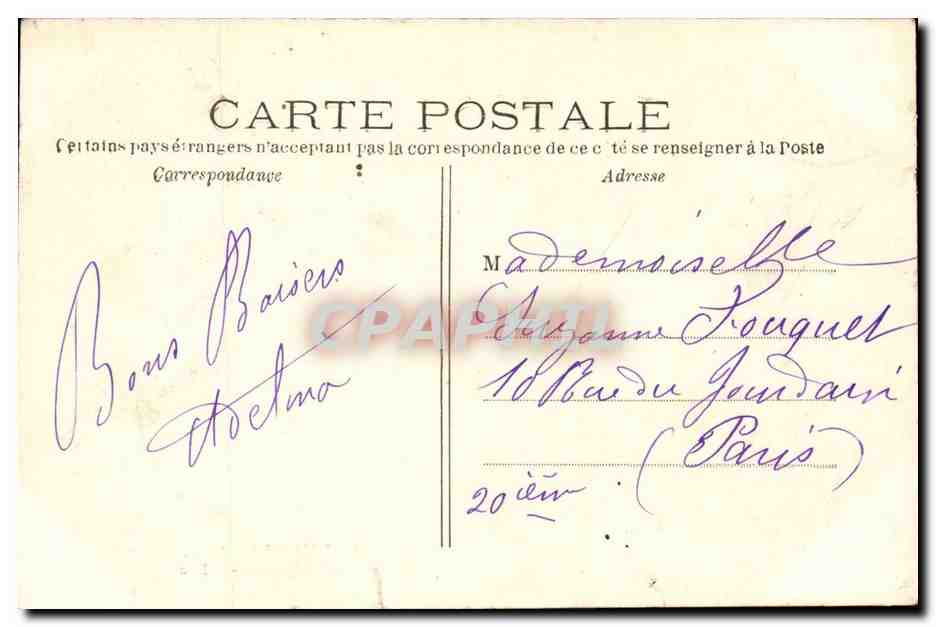 CARTE POSTALE
Certains pays étrangers n'acceptant pas la correspondance de ce côté se renseigner à la Poste
Correspondance
Adresse
Bons Baisers
Mademoiselle
Suzanne Fouquet
10 Rue du Jourdain
(Paris)
20ième
CPAPHIL